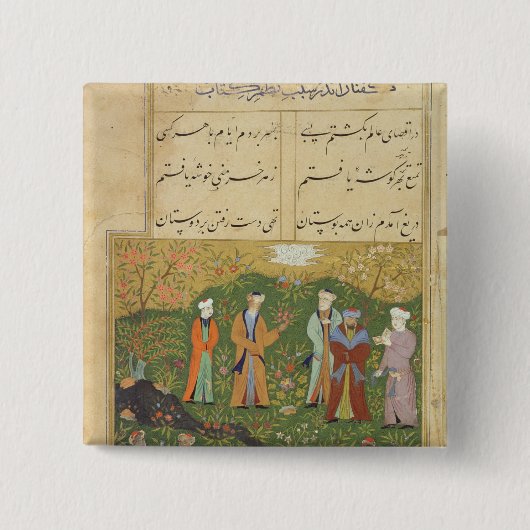 گفتار اندر سبب نظم کتاب
در اقصای عالم بکشتم بسی بسر بردم ایام با هر کسی
تمتع بهر کوشه یافتم زهر خرمنی خوشه یافتم
دریغ آمدم زان همه بوستان تهی دست رفتن بر دوستان